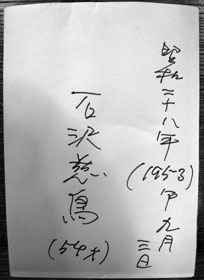 昭和二十八年
(1953)年 九月
三日
石沢慈鳥
(54才)